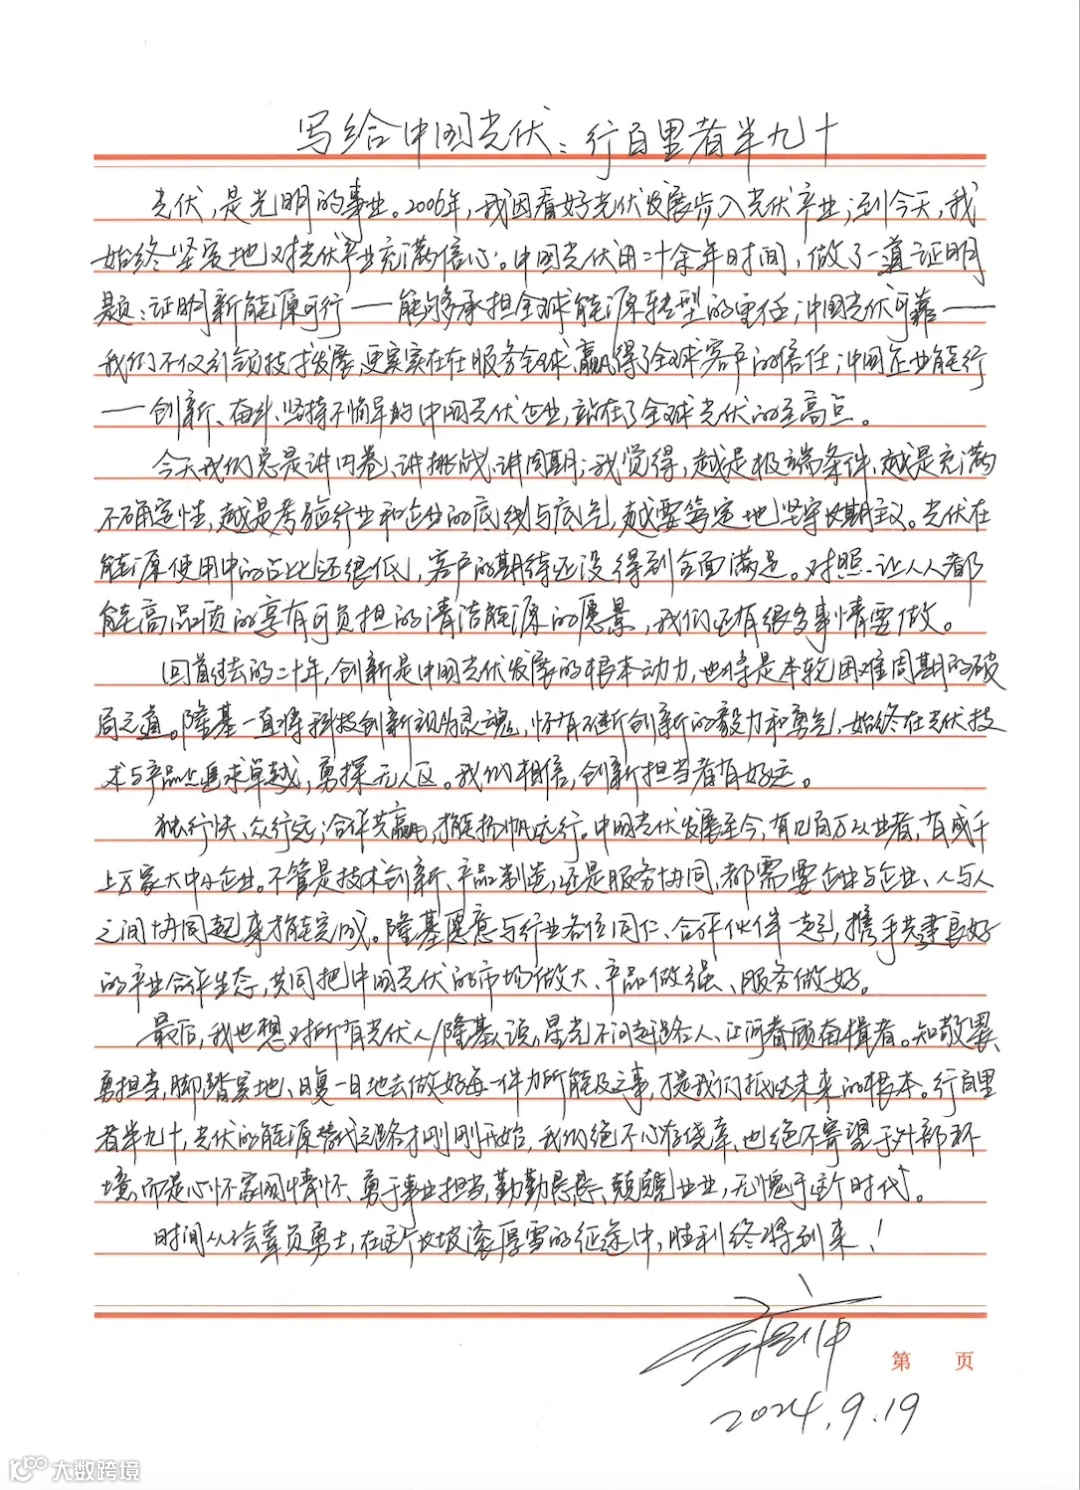 写给中国光伏：行百里者半九十
光伏，是光明的事业。2006年，我因看好光伏发展步入光伏产业；到今天，我
始终坚实地对光伏产业充满信心。中国光伏用二十余年时间，做了一道证明
题：证明新能源可行——能够承担全球能源转型的重任；中国光伏可靠——
我们不仅引领技术发展，更实实在在服务全球、赢得了全球客户的信任；中国企业能行
——创新、奋斗、坚持不懈早的中国光伏企业，站在了全球光伏的至高点。
今天我们总是讲内卷、讲挑战、讲周期；我觉得，越是极端条件、越是充满
不确定性，越是考验行业和企业的底线与底气，越要笃定地坚守长期主义。光伏在
能源使用中的占比还很低，客户的期待还没得到全面满足。对照让人人都
能高品质的享有可负担的清洁能源的愿景，我们还有很多事情要做。
回首过去的二十年，创新是中国光伏发展的根本动力，也将是本轮困难周期的破
局之道。隆基一直将科技创新视为灵魂，怀有不断创新的毅力和勇气，始终在光伏技
术与产品上追求卓越，勇探无人区。我们相信，创新担当者有好运。
独行快、众行远；合作共赢，才能扬帆远行。中国光伏发展至今，有几百万从业者，有成千
上万家大中小企业。不管是技术创新、产品制造，还是服务协同，都需要企业与企业、人与人
之间协同起来才能完成。隆基愿意与行业各位同仁、合作伙伴一起，携手共建良好
的产业合作生态，共同把中国光伏的市场做大、产品做强、服务做好。
最后，我也想对所有光伏人/隆基人说，星光不问赶路人、江河眷顾奋楫者。知敬畏、
勇担当，脚踏实地、日复一日地去做好每一件力所能及之事，才是我们抵达未来的根本。行百里
者半九十，光伏的能源替代之路才刚刚开始，我们绝不心存侥幸、也绝不寄望于外部环
境，而是心怀家国情怀、勇于事业担当，勤勤恳恳、兢兢业业，无愧于这个时代。
时间从不会辜负勇士，在这个长坡滚厚雪的征途中，胜利终将到来！
第 页
2024.9.19
大数跨境